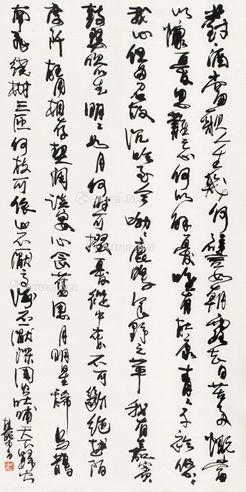 對酒當歌人生幾何譬如朝露去日苦多慨當
以慷憂思難忘何以解憂唯有杜康青青子衿悠悠
我心但為君故沉吟至今呦呦鹿鳴食野之苹我有嘉賓
鼓瑟吹笙明明如月何時可掇憂從中來不可斷絕越陌
度阡枉用相存契闊談讌心念舊恩月明星稀烏鵲
南飛繞樹三匝何枝可依山不厭高海不厭深周公吐哺天下歸心